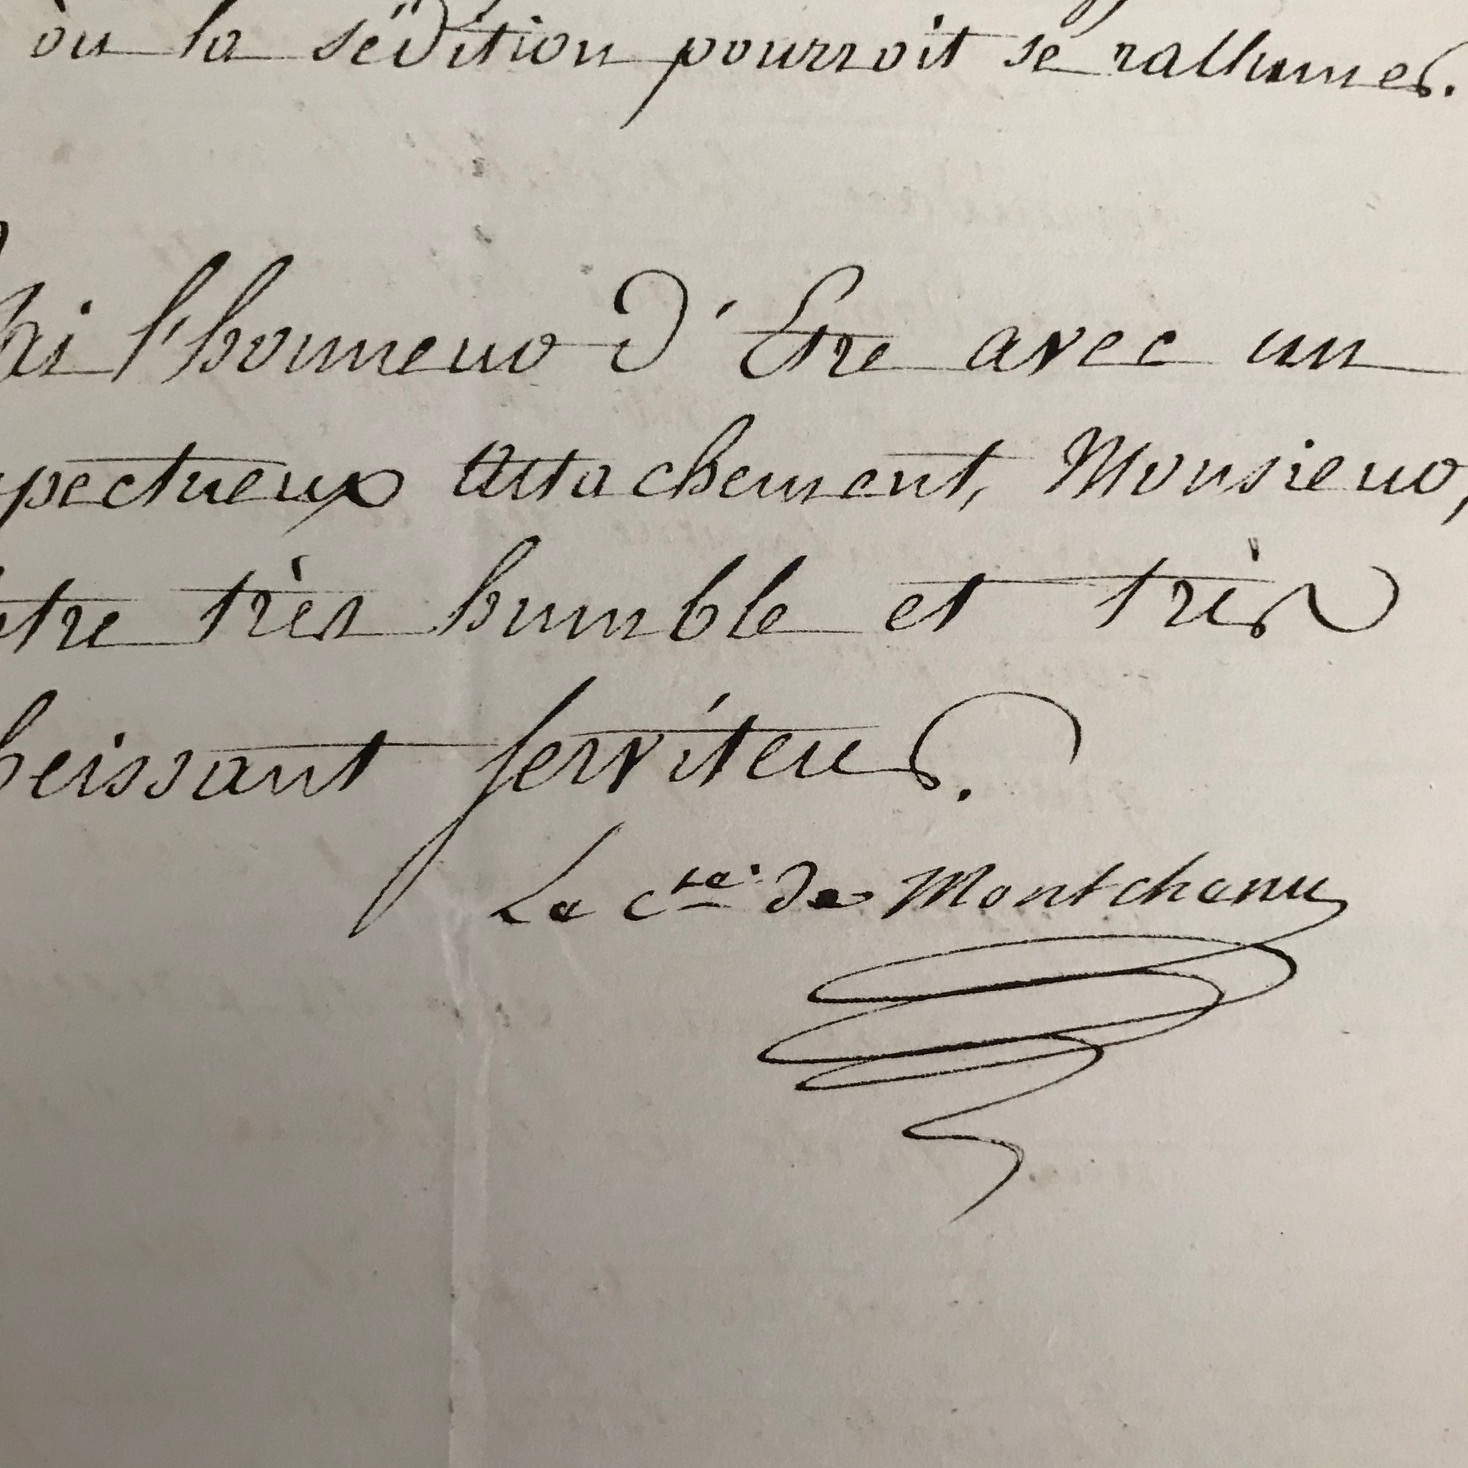 où la sédition pourroit se rallumer.
hai l'honneur d'Etre avec un
pectueux Attachement, Monsieur,
tre très humble et très
beissant serviteur.
Le Cte. de Montchenu